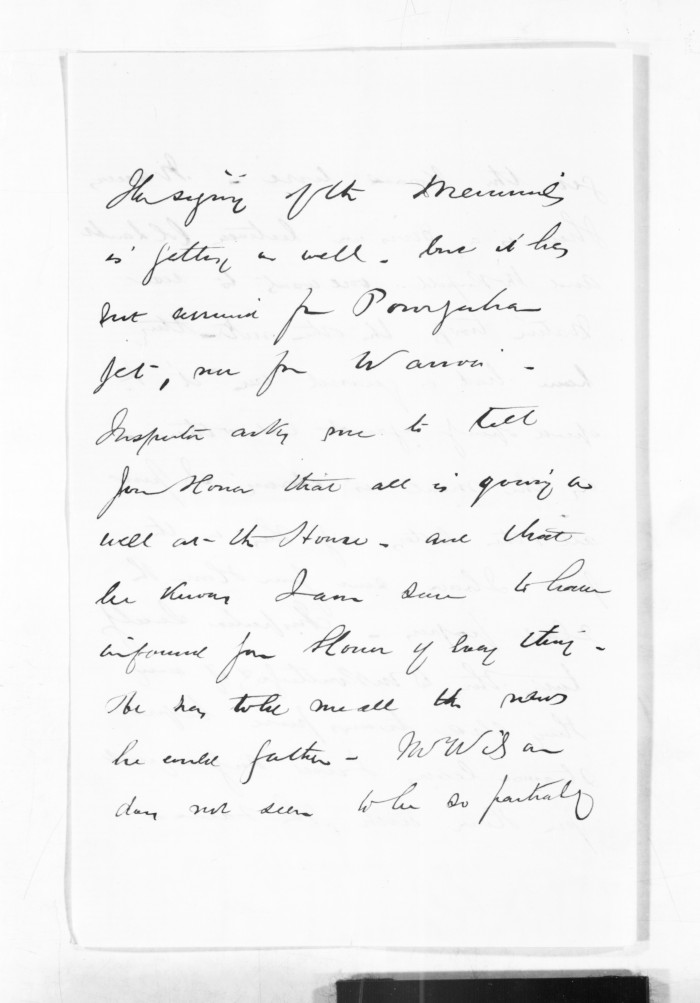 The signing of the Memorials
is getting on well - but it has
not arrived for Poverty
yet, nor for Wairoa -
Inspector asks me to tell
your Honor that all is going on
well at the House - and that
he knows I am sure to have
informed your Honor of every thing -
He has told me all the news
he could gather - Mr Wilson
does not seem to be so partial